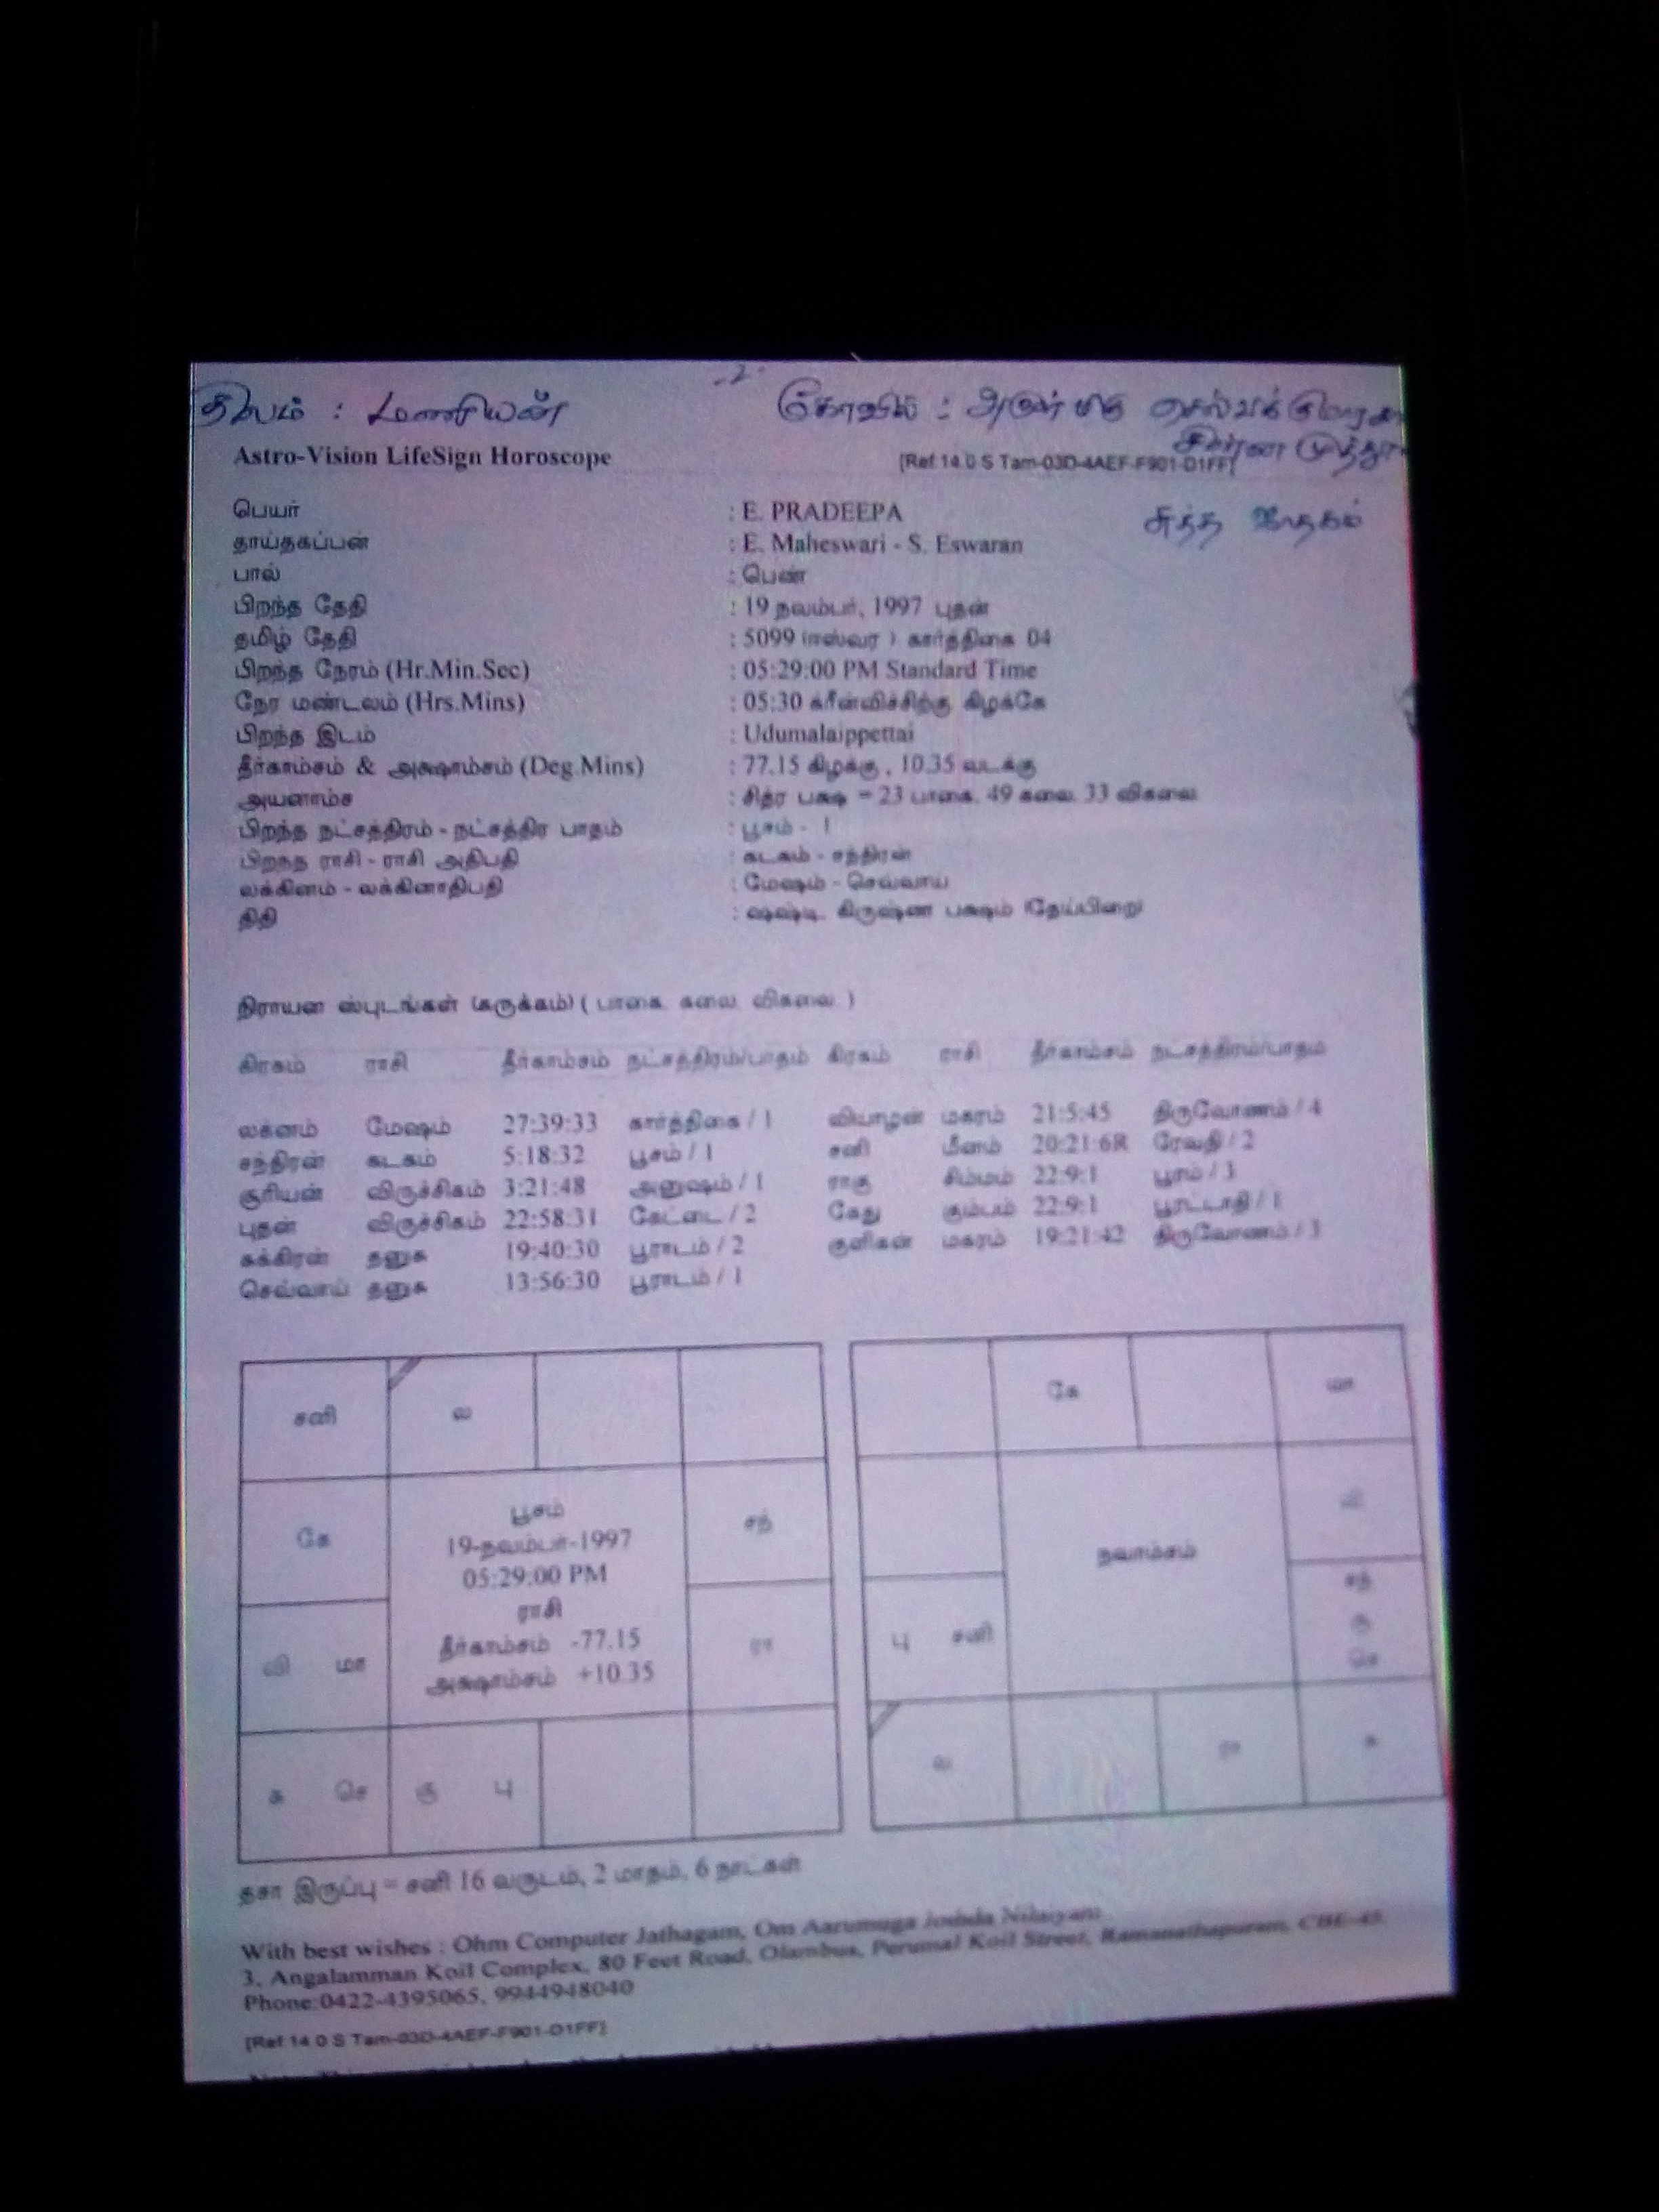 -2-
குலம் : மணியன் கோவில் : அருள்மிகு செல்வக்குமார
சின்ன முத்தூர்
Astro-Vision LifeSign Horoscope [Ref 14.0 S Tam-03D-4AEF-F901-D1FF]
சுத்த ஜாதகம்
பெயர் : E. PRADEEPA
தாய்தகப்பன் : E. Maheswari - S. Eswaran
பால் : பெண்
பிறந்த தேதி : 19 நவம்பர், 1997 புதன்
தமிழ் தேதி : 5099 (ஈஸ்வர ) கார்த்திகை 04
பிறந்த நேரம் (Hr.Min.Sec) : 05:29:00 PM Standard Time
நேர மண்டலம் (Hrs.Mins) : 05:30 கிரீன்விச்சிற்கு கிழக்கே
பிறந்த இடம் : Udumalaippettai
தீர்காம்சம் & அக்ஷாம்சம் (Deg.Mins) : 77.15 கிழக்கு , 10.35 வடக்கு
அயனாம்ச : சித்ர பக்ஷ = 23 பாகை. 49 கலை. 33 விகலை.
பிறந்த நட்சத்திரம் - நட்சத்திர பாதம் : பூசம் - 1
பிறந்த ராசி - ராசி அதிபதி : கடகம் - சந்திரன்
லக்கினம் - லக்கினாதிபதி : மேஷம் - செவ்வாய்
திதி : ஷஷ்டி, கிருஷ்ண பக்ஷம் (தேய்பிறை)
நிராயன ஸ்புடங்கள் (சுருக்கம்) ( பாகை. கலை. விகலை. )
கிரகம் ராசி தீர்காம்சம் நட்சத்திரம்/பாதம் கிரகம் ராசி தீர்காம்சம் நட்சத்திரம்/பாதம்
லக்னம் மேஷம் 27:39:33 கார்த்திகை / 1 வியாழன் மகரம் 21:5:45 திருவோணம் / 4
சந்திரன் கடகம் 5:18:32 பூசம் / 1 சனி மீனம் 20:21:6R ரேவதி / 2
சூரியன் விருச்சிகம் 3:21:48 அனுஷம் / 1 ராகு சிம்மம் 22:9:1 பூரம் / 3
புதன் விருச்சிகம் 22:58:31 கேட்டை / 2 கேது கும்பம் 22:9:1 பூரட்டாதி / 1
சுக்கிரன் தனுசு 19:40:30 பூராடம் / 2 குளிகன் மகரம் 19:21:42 திருவோணம் / 3
செவ்வாய் தனுசு 13:56:30 பூராடம் / 1
சனி ல
கே சந்
பூசம்
19-நவம்பர்-1997
05:29:00 PM
ராசி
தீர்காம்சம் -77.15
அக்ஷாம்சம் +10.35
வி மா ரா
சு செ கு பு
கே மா
வி
நவாம்சம்
பு சனி சந்
கு
செ
ல ரா சு
தசா இருப்பு = சனி 16 வருடம், 2 மாதம், 6 நாட்கள்
With best wishes : Ohm Computer Jathagam, Om Aarumuga Joshda Nilaiyam
3, Angalamman Koil Complex, 80 Feet Road, Olambus, Perumal Koil Street, Ramanathapuram, CBE-45.
Phone:0422-4395065, 9944948040
[Ref 14.0 S Tam-03D-4AEF-F901-D1FF]